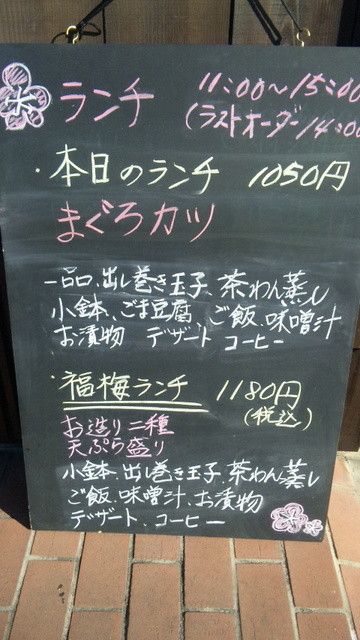 ランチ 11:00～15:00
(ラストオーダー14:00
・本日のランチ 1050円
まぐろカツ
一品、出し巻き玉子、茶わん蒸し
小鉢、ごま豆腐、ご飯、味噌汁
お漬物 デザート コーヒー
・福梅ランチ 1180円
(税込)
お造り二種
天ぷら盛り
小鉢、出し巻き玉子、茶わん蒸し
ご飯、味噌汁、お漬物
デザート、コーヒー